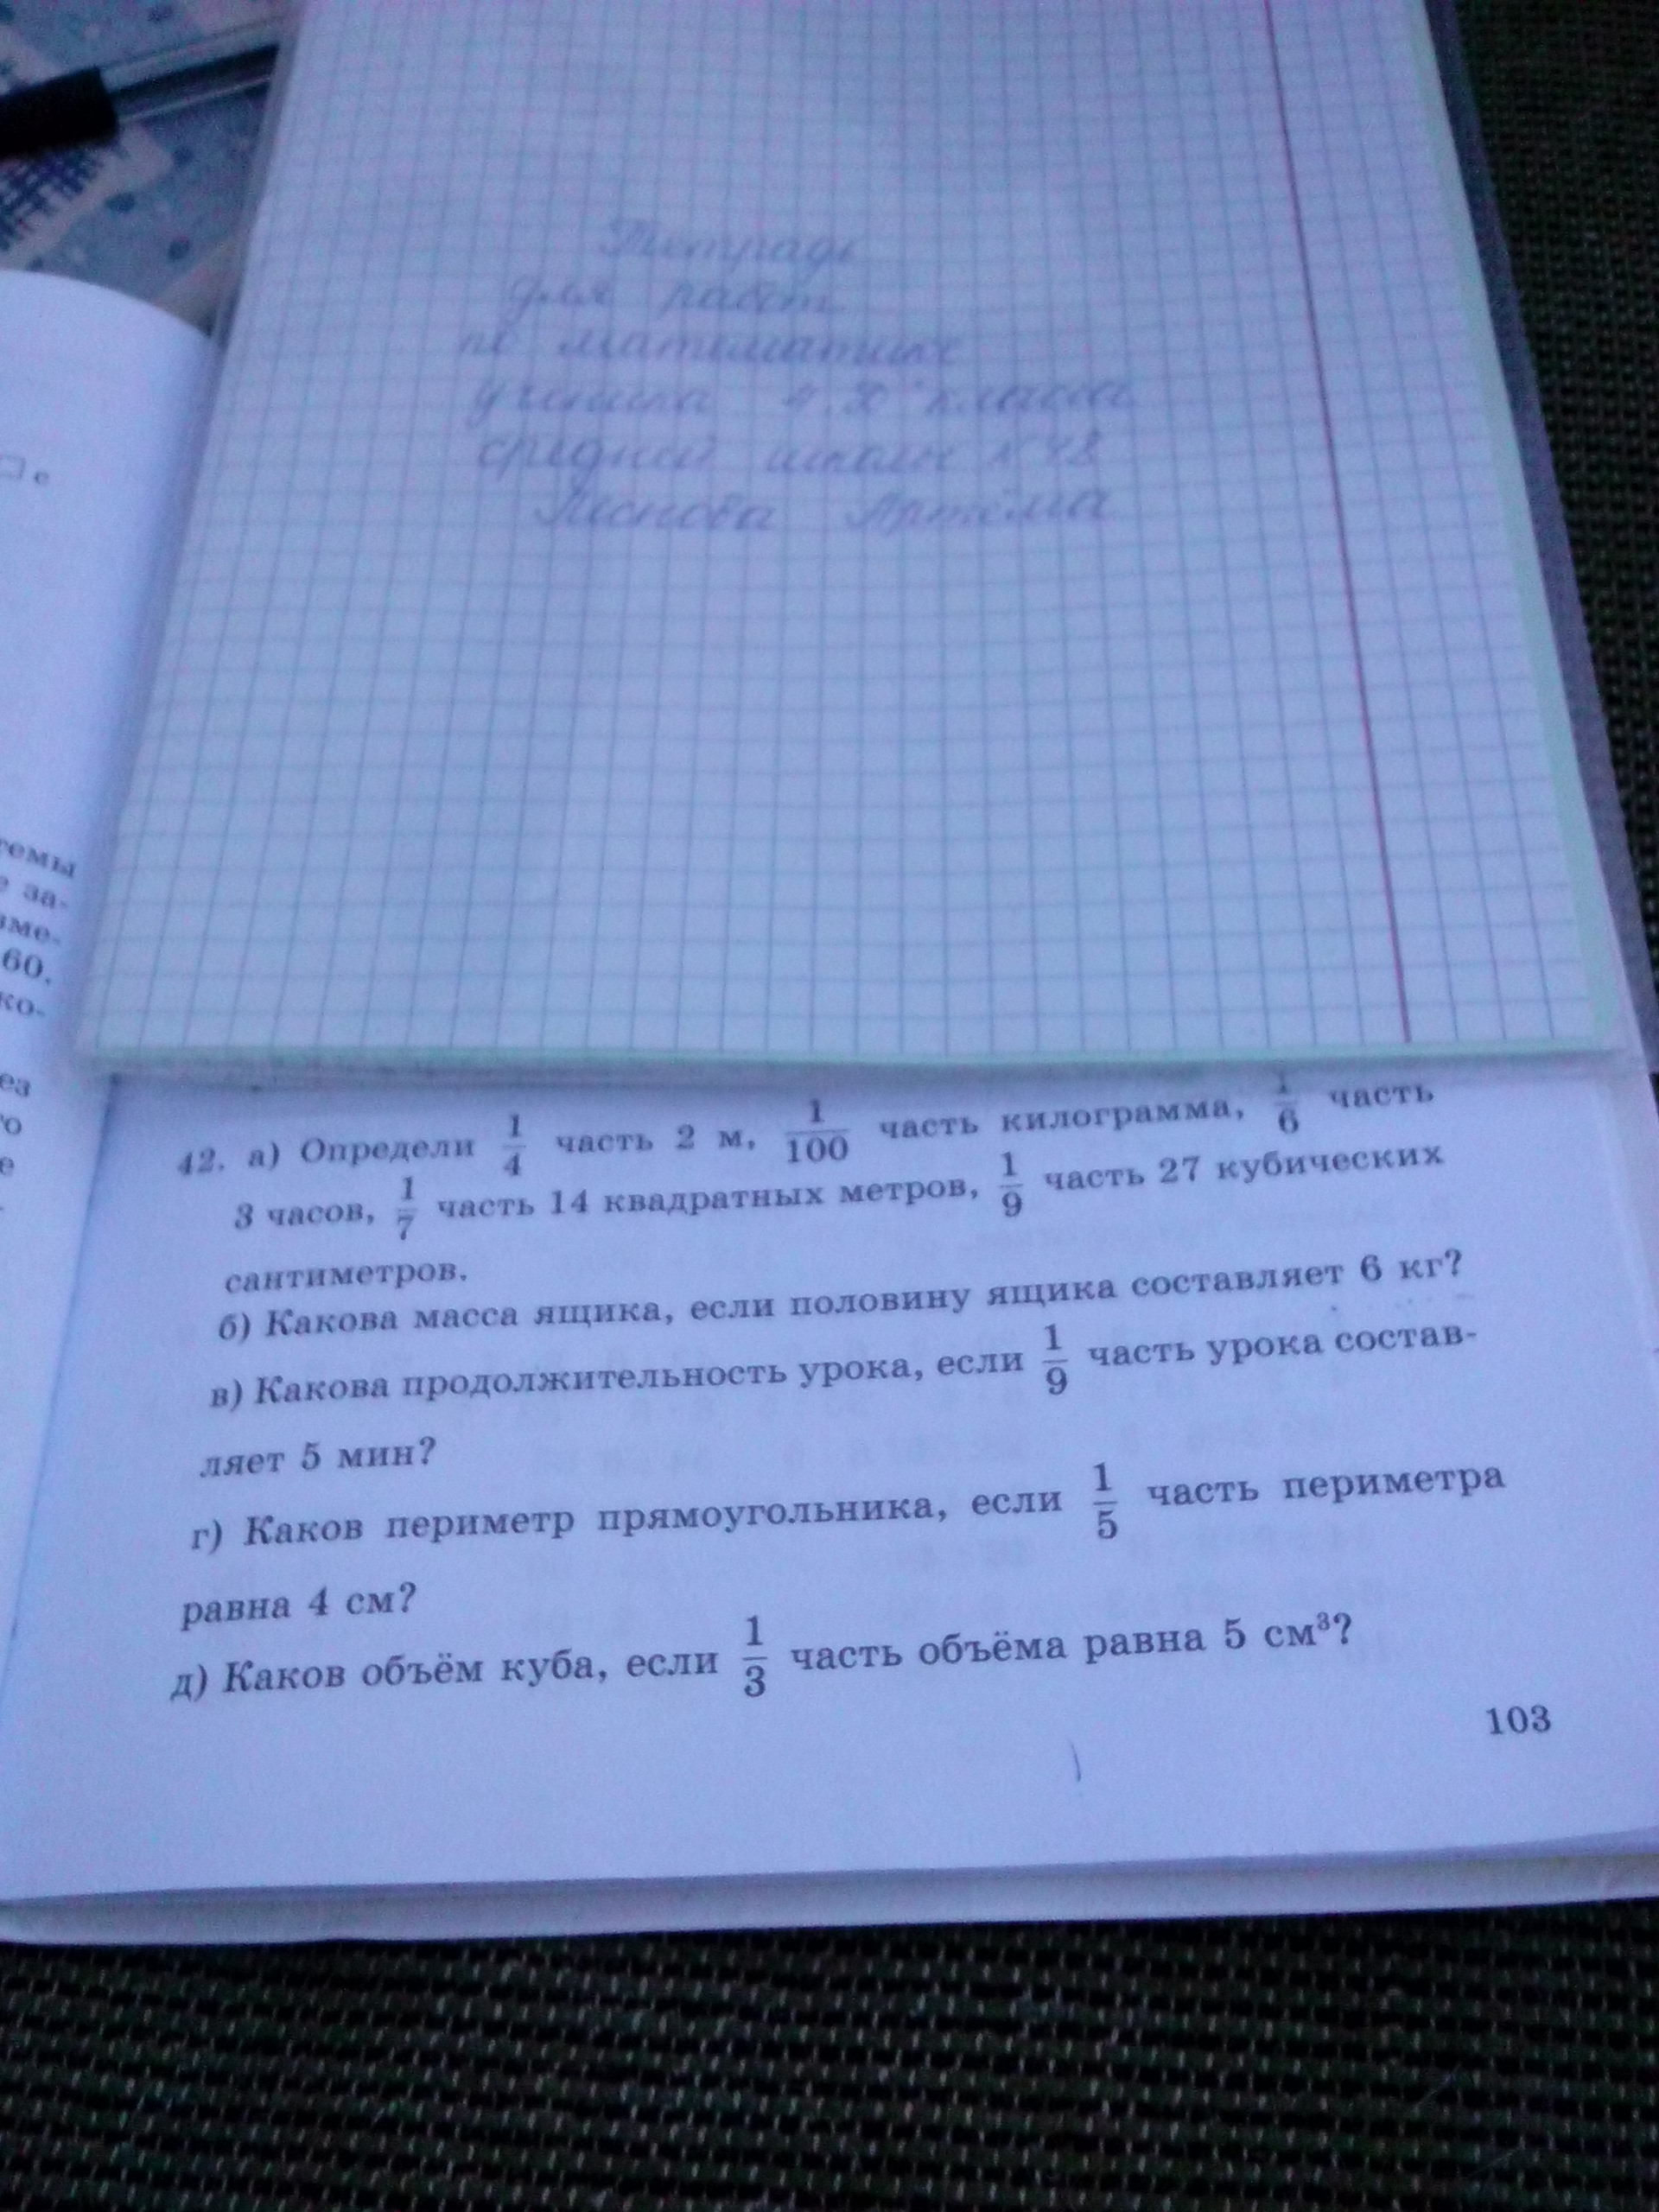 е
темы
е за-
зме-
60.
ко-
ез
го
е
Тетрадь
для работ
по математике
ученика 4 класса
средней школы № 48
Артёма
42. а) Определи 1/4 часть 2 м, 1/100 часть килограмма, 1/6 часть
3 часов, 1/7 часть 14 квадратных метров, 1/9 часть 27 кубических
сантиметров.
б) Какова масса ящика, если половину ящика составляет 6 кг?
в) Какова продолжительность урока, если 1/9 часть урока состав-
ляет 5 мин?
г) Каков периметр прямоугольника, если 1/5 часть периметра
равна 4 см?
д) Каков объём куба, если 1/3 часть объёма равна 5 см³?
103